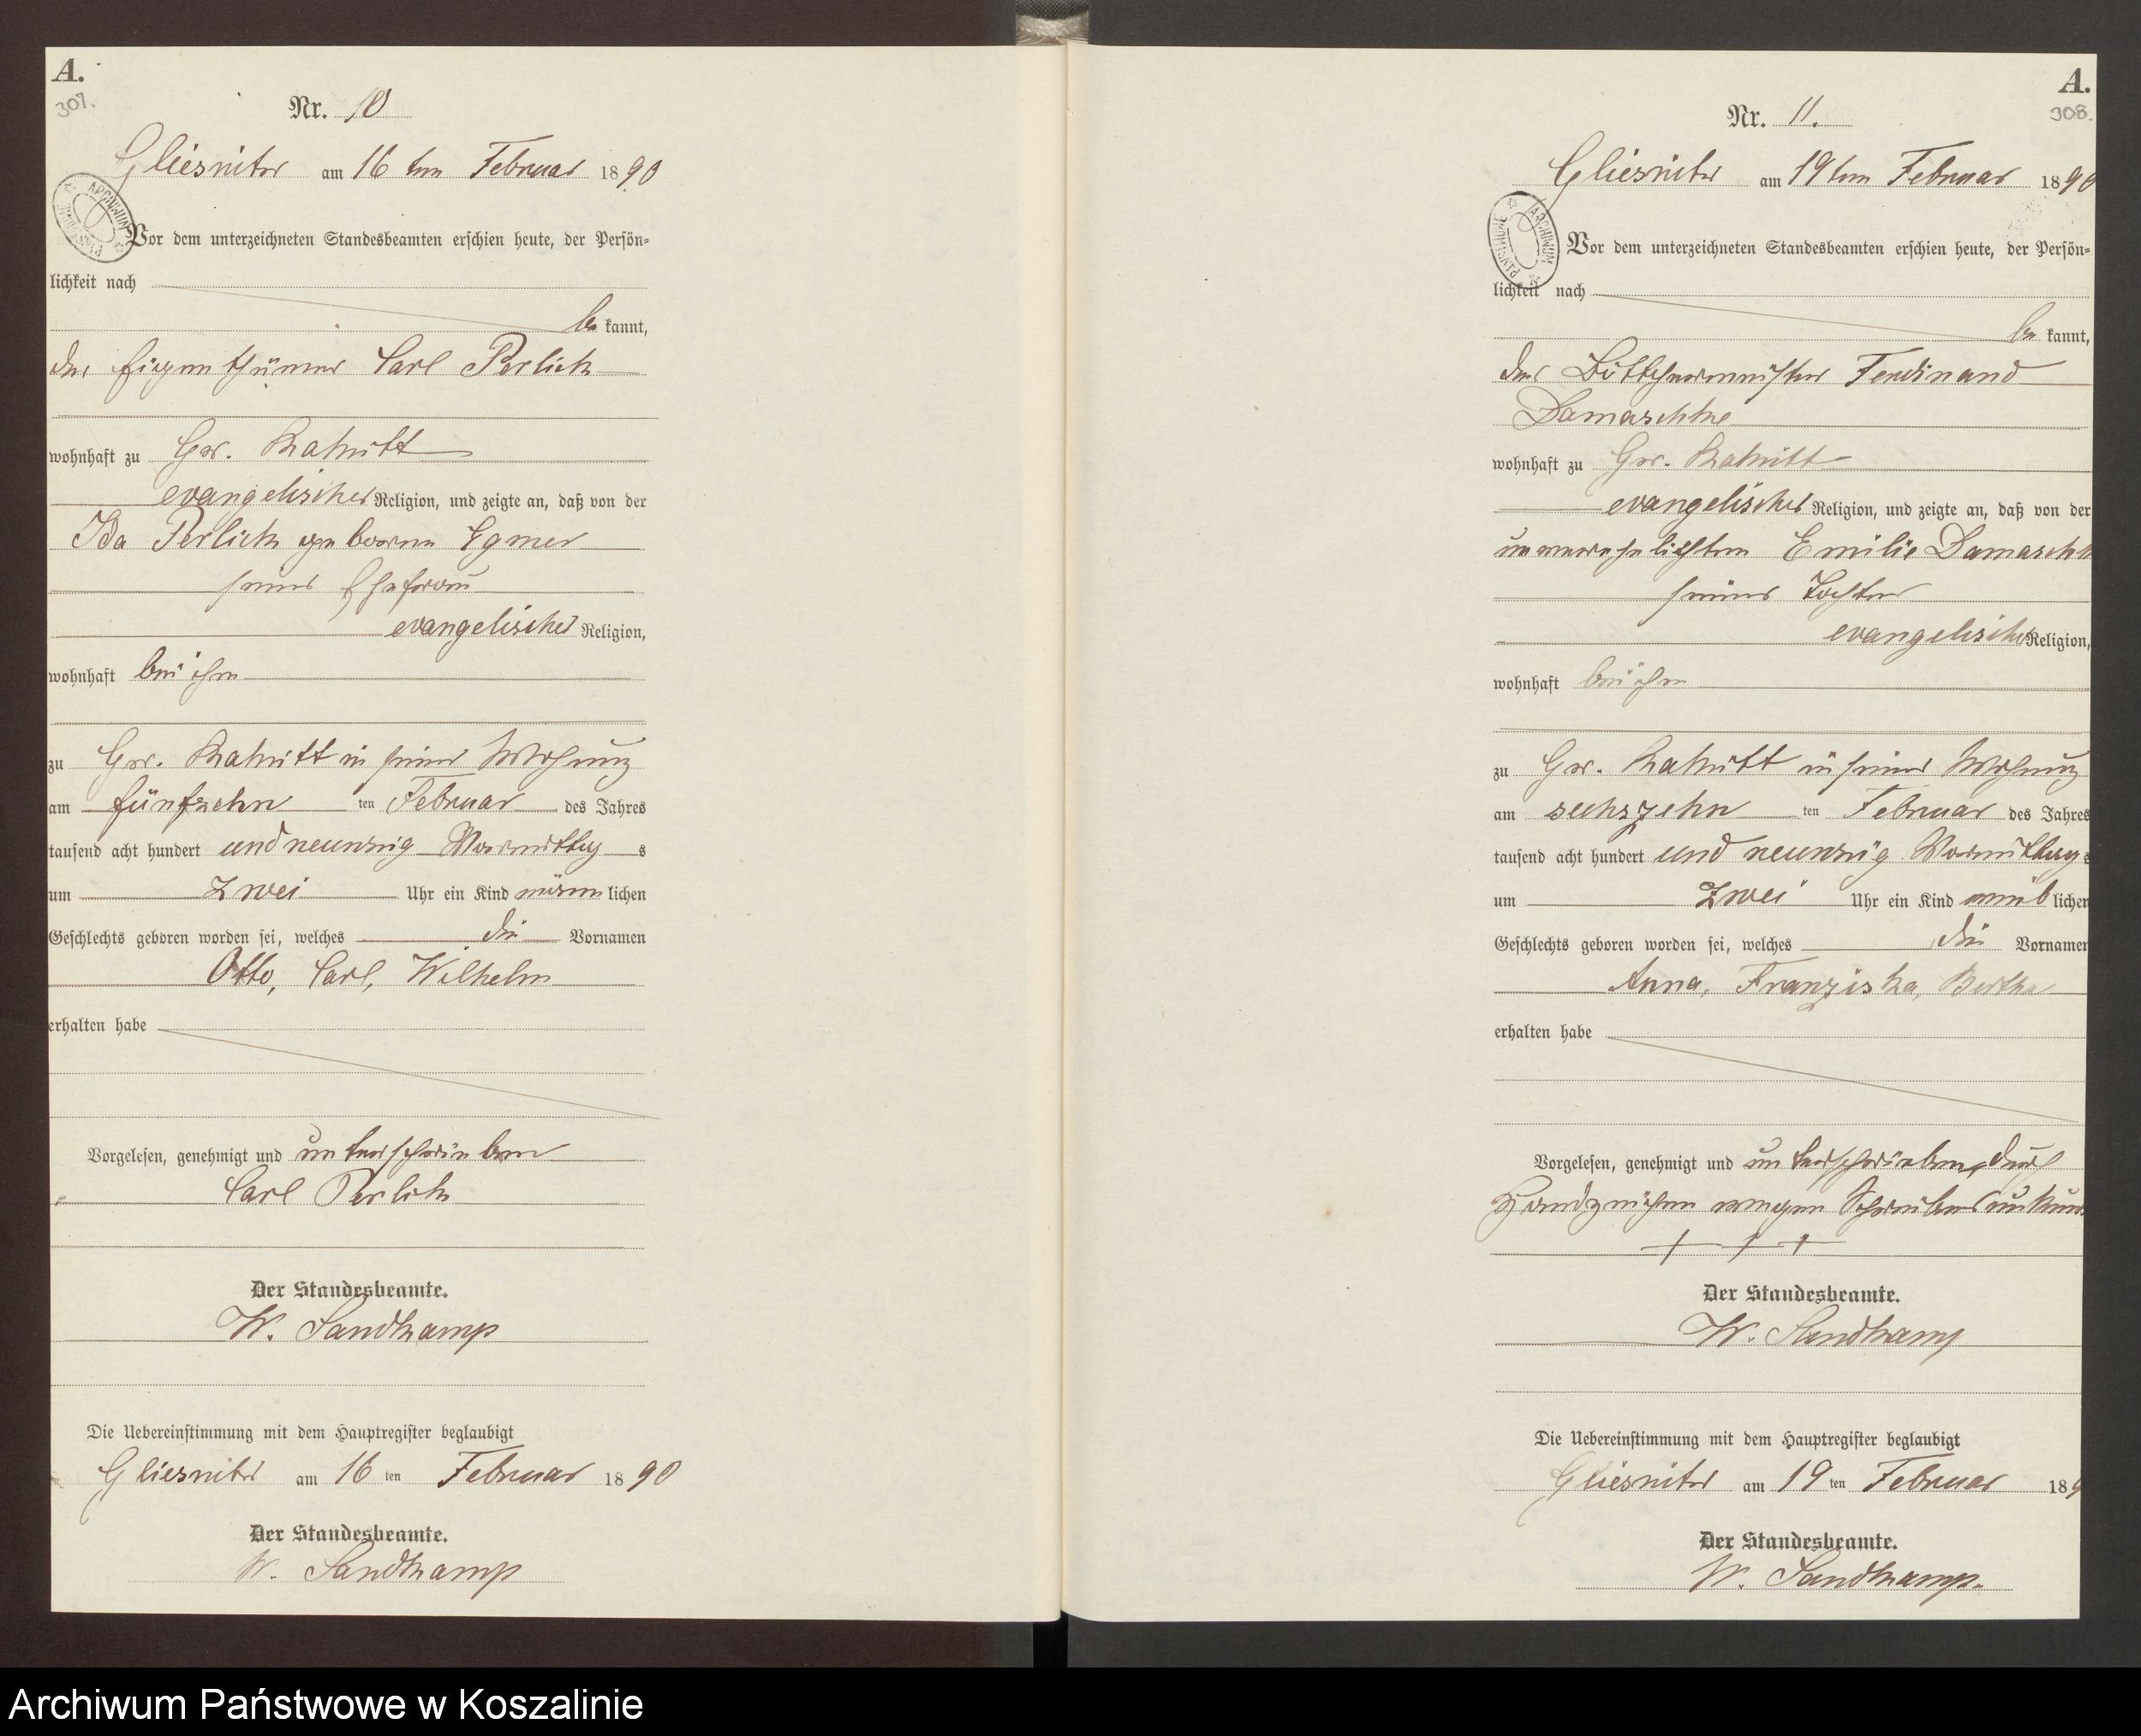 A.
307.
Nr. 10
Gliesnitz am 16 ten Februar 1890
ARCHIWUM PAŃSTWOWE
Vor dem unterzeichneten Standesbeamten erschien heute, der Persön-
lichkeit nach
be kannt,
der Eigenthümer Carl Perlick
wohnhaft zu Gr. Rakitt
evangelischer Religion, und zeigte an, daß von der
Ida Perlick geborne Egmer
seiner Ehefrau
evangelischer Religion,
wohnhaft bei ihm
zu Gr. Rakitt in seiner Wohnung
am fünfzehn ten Februar des Jahres
tausend acht hundert und neunzig Vormittag s
um Zwei Uhr ein Kind männ lichen
Geschlechts geboren worden sei, welches die Vornamen
Otto, Carl, Wilhelm
erhalten habe
Vorgelesen, genehmigt und unterschrieben
Carl Perlick
Der Standesbeamte.
W. Sandkamp
Die Uebereinstimmung mit dem Hauptregister beglaubigt
Gliesnitz am 16 ten Februar 1890
Der Standesbeamte.
W. Sandkamp
A.
308.
Nr. 11.
Gliesnitz am 19 ten Februar 1890
ARCHIWUM PAŃSTWOWE
Vor dem unterzeichneten Standesbeamten erschien heute, der Persön-
lichkeit nach
be kannt,
der Böttchermeister Ferdinand
Damaschke
wohnhaft zu Gr. Rakitt
evangelischer Religion, und zeigte an, daß von der
unverehelichten Emilie Damaschk
seiner Tochter
evangelischer Religion,
wohnhaft bei ihm
zu Gr. Rakitt in seiner Wohnung
am sechszehn ten Februar des Jahres
tausend acht hundert und neunzig Vormittag s
um Zwei Uhr ein Kind weib lichen
Geschlechts geboren worden sei, welches die Vornamen
Anna, Franziska, Bertha
erhalten habe
Vorgelesen, genehmigt und unterschrieben, durch
Handzeichen wegen Schreibens unkund
+ + +
Der Standesbeamte.
W. Sandkamp
Die Uebereinstimmung mit dem Hauptregister beglaubigt
Gliesnitz am 19 ten Februar 189
Der Standesbeamte.
W. Sandkamp.
Archiwum Państwowe w Koszalinie